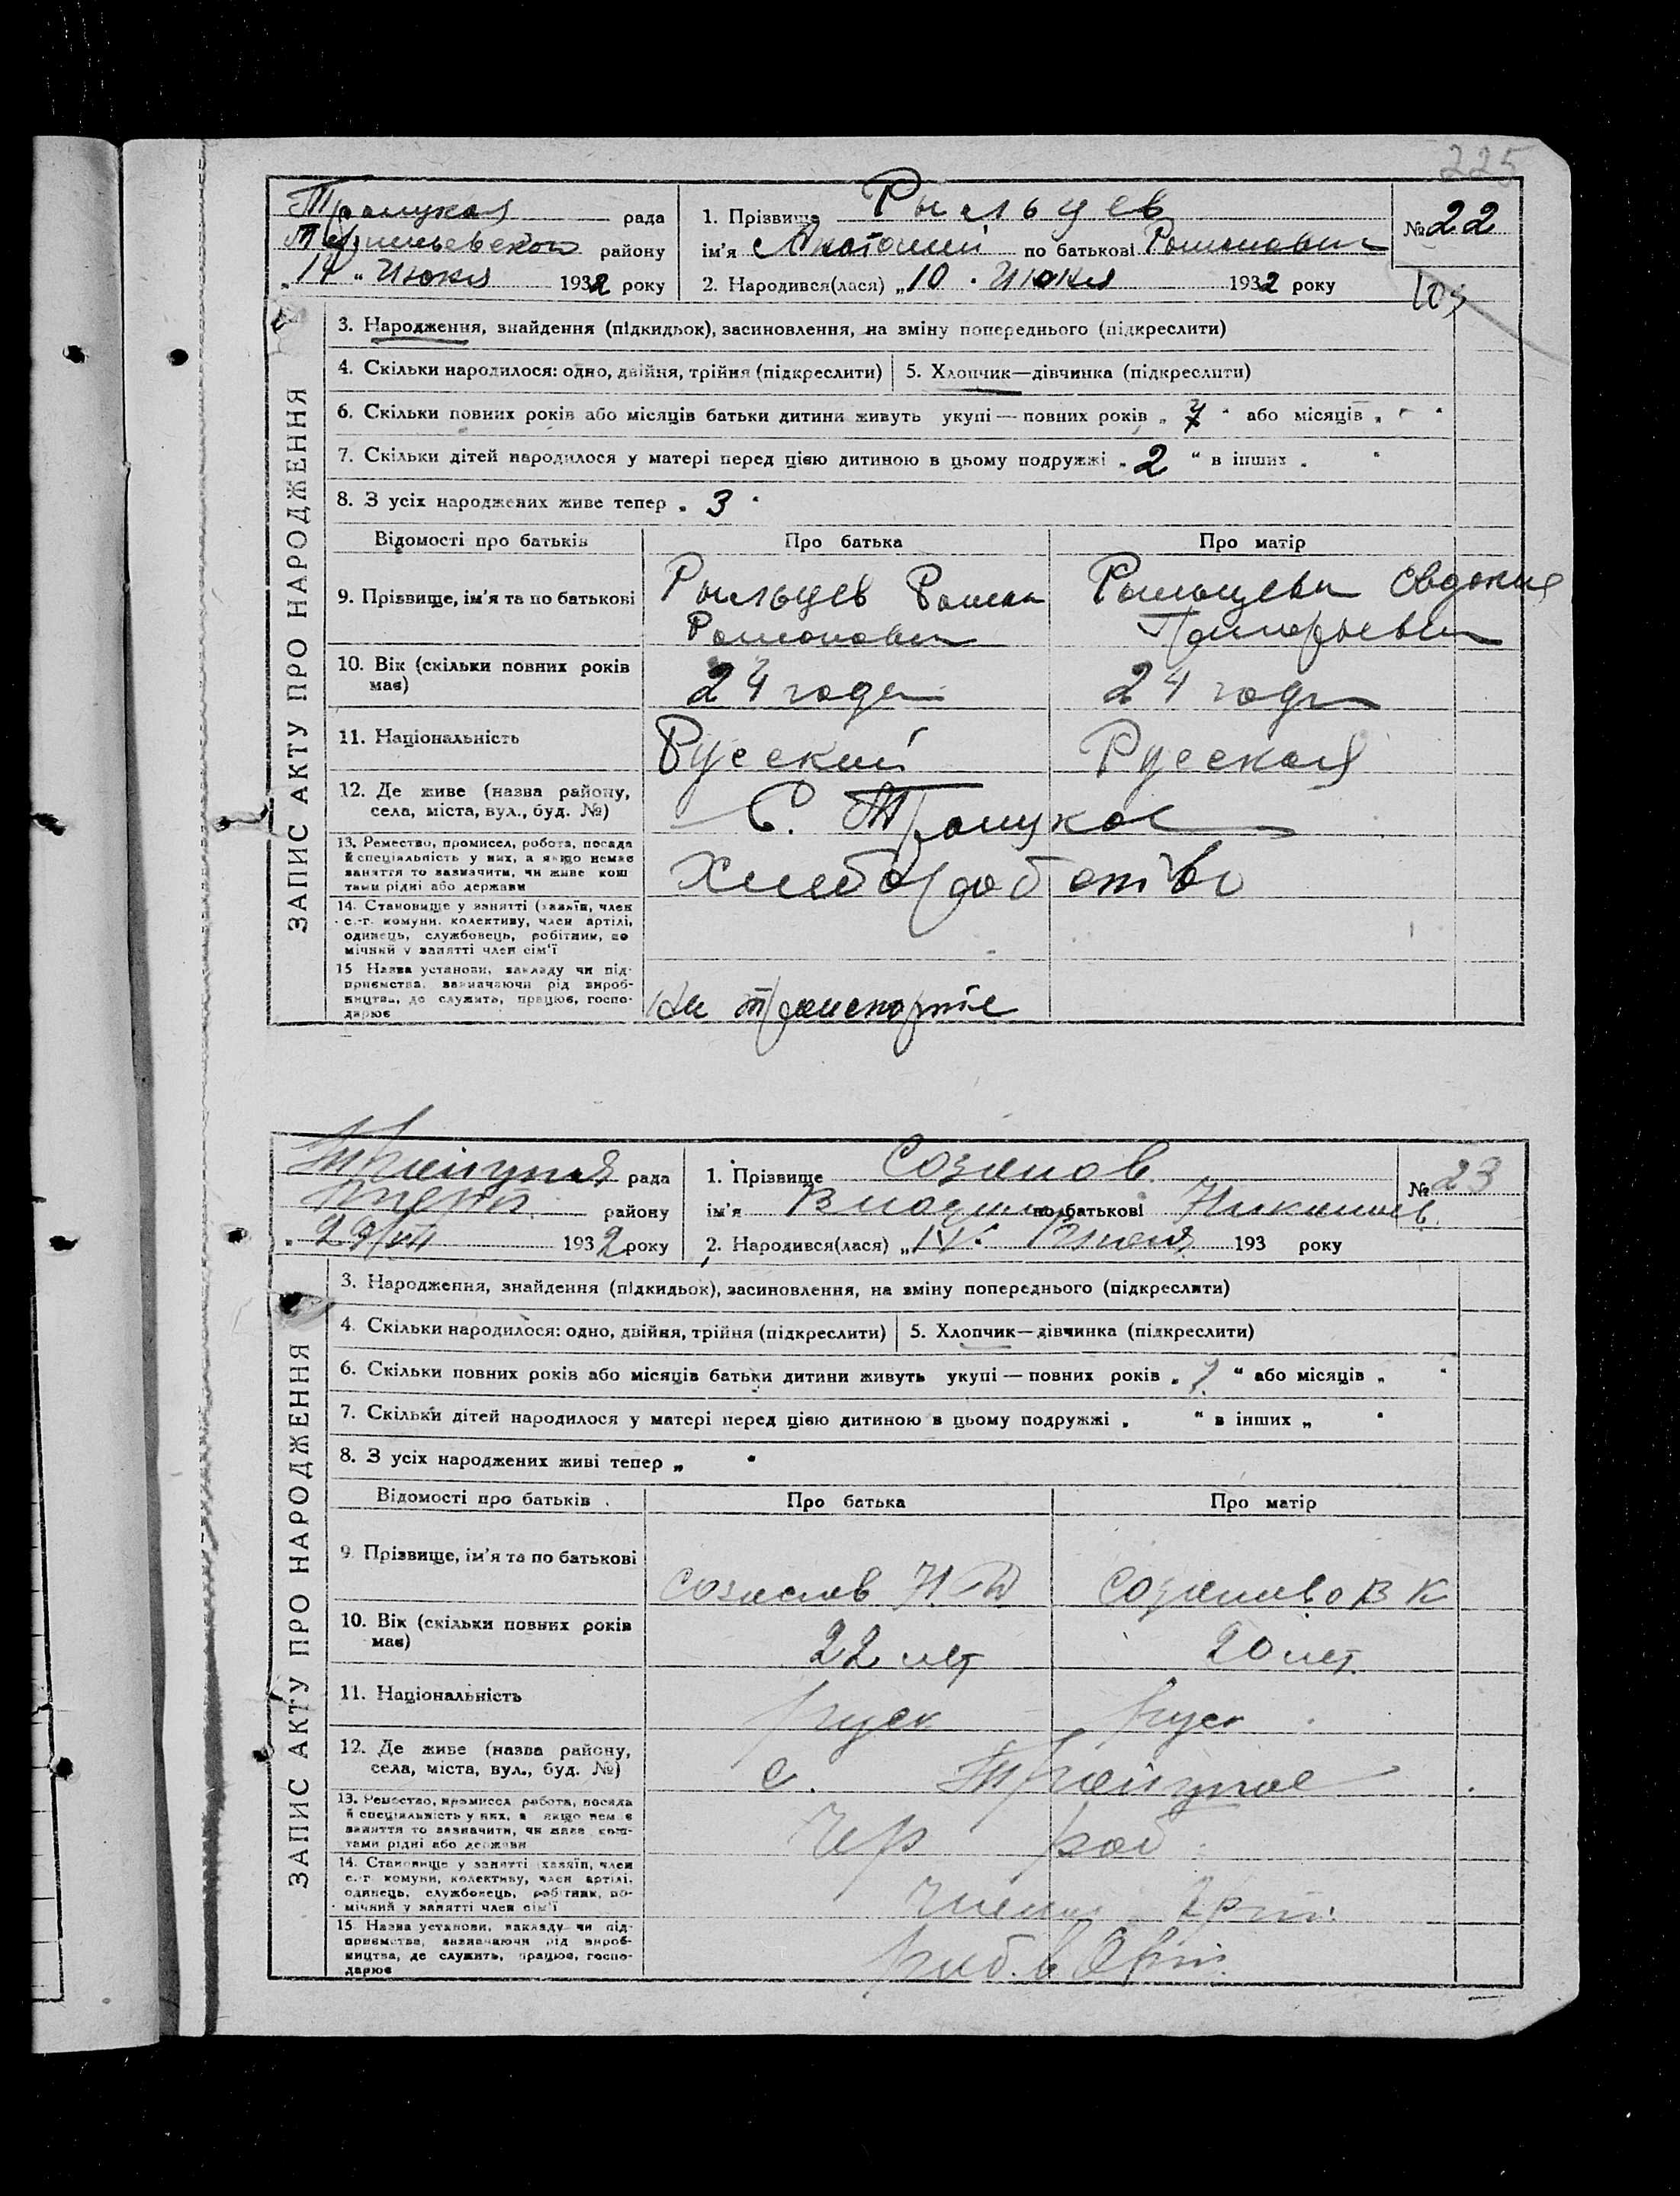 225
Троицкая рада
района
"14" Июня 1932 року
1. Прізвище Рыльцев
ім'я Анатолий по батькові Романович
2. Народився(лася) „10" Июня 1932 року
№ 22
ЗАПИС АКТУ ПРО НАРОДЖЕННЯ
3. Народження, знайдення (підкидьок), засиновлення, на зміну попереднього (підкреслити)
4. Скільки народилося: одно, двійня, трійня (підкреслити) 5. Хлопчик—дівчинка (підкреслити)
6. Скільки повних років або місяців батьки дитини живуть укупі — повних років „ " або місяців „ "
7. Скільки дітей народилося у матері перед цією дитиною в цьому подружжі „2" в інших „ "
8. З усіх народжених живе тепер „3"
Відомості про батьків Про батька Про матір
9. Прізвище, ім'я та по батькові Рыльцев Роман Рыльцева Евдокия
Романович Григорьевна
10. Вік (скільки повних років має) 24 года 24 года
11. Національність Русский Русская
12. Де живе (назва району, села, міста, вул., буд. №) С. Троицкое
13. Ремество, промисел, робота, посада й спеціальність у них, а якщо немає заняття то зазначити, чи живе коштами рідні або держави Хлеборобство
14. Становище у занятті (хазяїн, член с.-г. комуни, колективу, член артілі, одинець, службовець, робітник, помічний у занятті член сім'ї
15 Назва установи, закладу чи підприємства, зазначаючи рід виробництва, де служить, працює, господарює На транспорте
Троицкая рада
району
"29/VII 1932 року
1. Прізвище Созанов
ім'я Владим по батькові
2. Народився(лася) „ 193 року
№ 23
ЗАПИС АКТУ ПРО НАРОДЖЕННЯ
3. Народження, знайдення (підкидьок), засиновлення, на зміну попереднього (підкреслити)
4. Скільки народилося: одно, двійня, трійня (підкреслити) 5. Хлопчик—дівчинка (підкреслити)
6. Скільки повних років або місяців батьки дитини живуть укупі — повних років „ " або місяців „ "
7. Скільки дітей народилося у матері перед цією дитиною в цьому подружжі „ " в інших „ "
8. З усіх народжених живі тепер „ "
Відомості про батьків Про батька Про матір
9. Прізвище, ім'я та по батькові Созанов Н. Созанова В К
10. Вік (скільки повних років має) 22 лет 20 лет.
11. Національність руск руск
12. Де живе (назва району, села, міста, вул., буд. №) с. Троицкое
13. Ремество, промисел, робота, посада й спеціальність у них, а якщо немає заняття то зазначити, чи живе коштами рідні або держави роб
14. Становище у занятті (хазяїн, член с.-г. комуни, колективу, член артілі, одинець, службовець, робітник, помічний у занятті член сім'ї Член Арт.
15 Назва установи, закладу чи підприємства, зазначаючи рід виробництва, де служить, працює, господарює раб. в Арт.